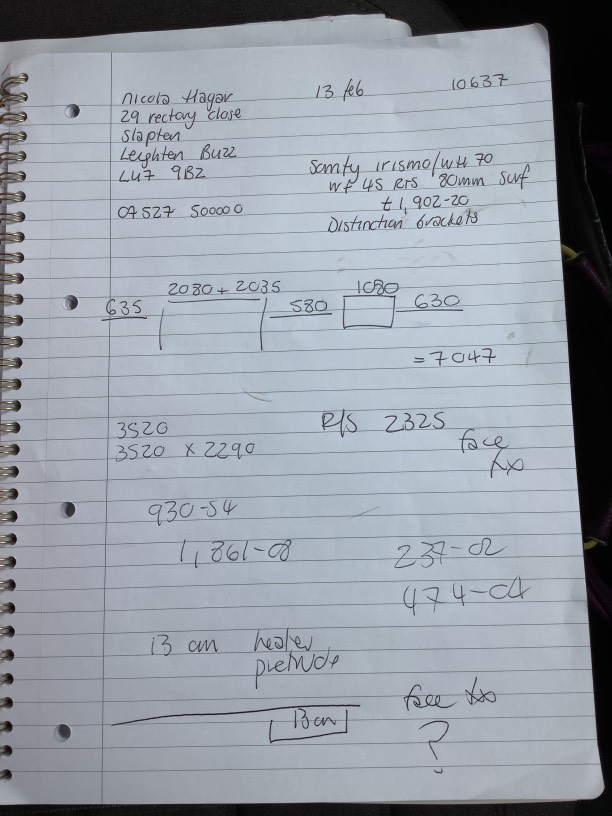 Nicola Hagar 13 feb 10637
29 rectory close
Slapten
Leighten Buzz
LU7 9BZ
07527 500000
irismo/WH 70
WF 45 RTS 80mm Swf
£1,902-20
Distinction brackets
2080 + 2035 1080
635 580 630
= 7047
3520 R/S 2325
3520 x 2290 face
fix
930-54
1,861-08 237-02
474-04
13 cm heater
protrude
face fix
13 cm
?